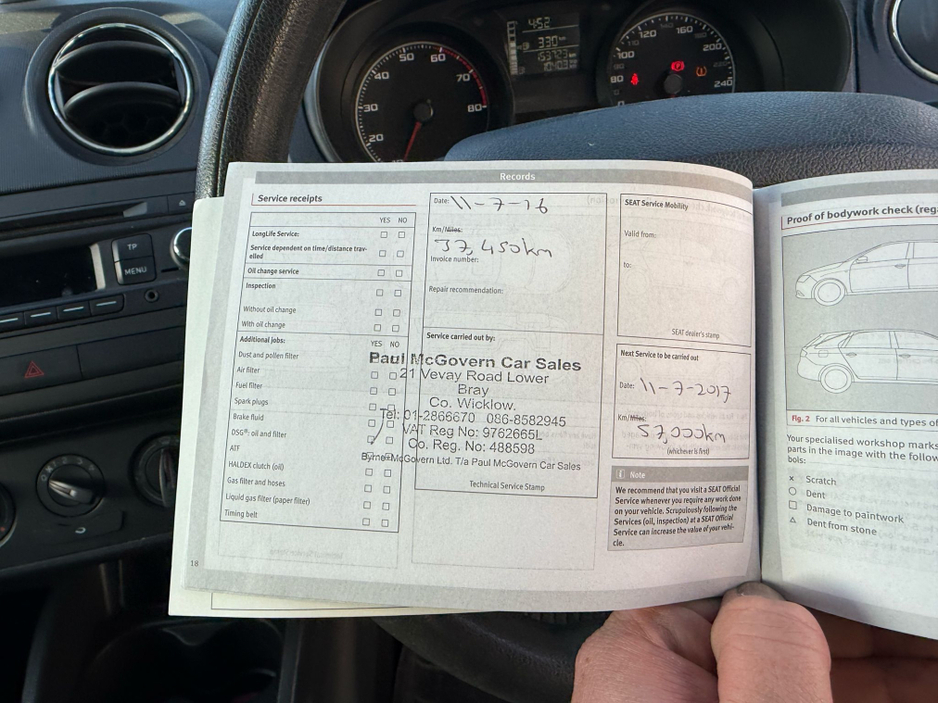 4:52
330 km
50 60
40 70
30 80
20
120 160
100 200
80 240
TP
MENU
Records
Service receipts
YES NO
LongLife Service:
Service dependent on time/distance trav-
elled
Oil change service
Inspection
Without oil change
With oil change
Additional jobs: YES NO
Dust and pollen filter
Air filter
Fuel filter
Spark plugs
Brake fluid
DSG®: oil and filter
ATF
HALDEX clutch (oil)
Gas filter and hoses
Liquid gas filter (paper filter)
Timing belt
18
Date: 11-7-16
Km/Miles:
37,450km
Invoice number:
Repair recommendation:
Service carried out by:
Paul McGovern Car Sales
21 Vevay Road Lower
Bray
Co. Wicklow.
Tel: 01-2866670 086-8582945
VAT Reg No: 9762665L
Co. Reg. No: 488598
Byrne-McGovern Ltd. T/a Paul McGovern Car Sales
Technical Service Stamp
SEAT Service Mobility
Valid from:
to:
SEAT dealer's stamp
Next Service to be carried out
Date: 11-7-2017
Km/Miles:
57,000km
(whichever is first)
i Note
We recommend that you visit a SEAT Official
Service whenever you require any work done
on your vehicle. Scrupulously following the
Services (oil, inspection) at a SEAT Official
Service can increase the value of your vehi-
cle.
Proof of bodywork check (reg.
Fig. 2 For all vehicles and types of
Your specialised workshop marks
parts in the image with the follow
bols:
× Scratch
○ Dent
□ Damage to paintwork
△ Dent from stone